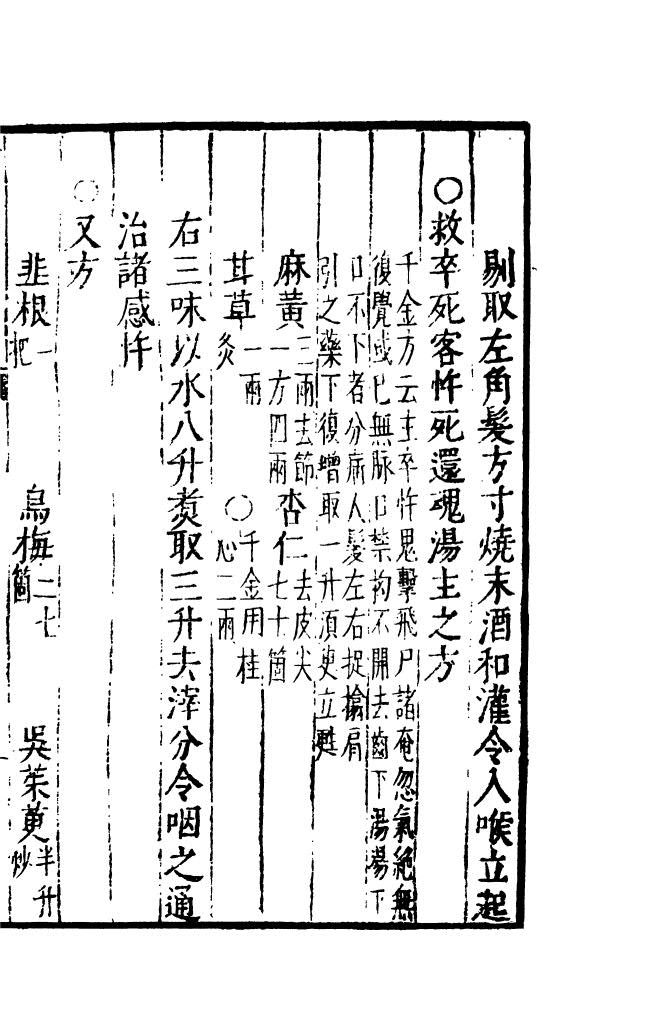 剔取左角髮方寸燒末酒和灌令入喉立起
○救卒死客忤死還魂湯主之方
千金方云主卒忤鬼擊飛尸諸奄忽氣絕無
復覺或已無脉口禁拘不開去齒下湯湯下
口不下者分病人髮左右捉搶肩
引之藥下復增取一升須臾立甦
麻黃三兩去節一方四兩 杏仁去皮尖七十箇
甘草一兩炙 ○千金用桂心二兩
右三味以水八升煑取三升去滓分令咽之通
治諸感忤
○又方
韭根一把 烏梅二七箇 吳茱萸半升炒